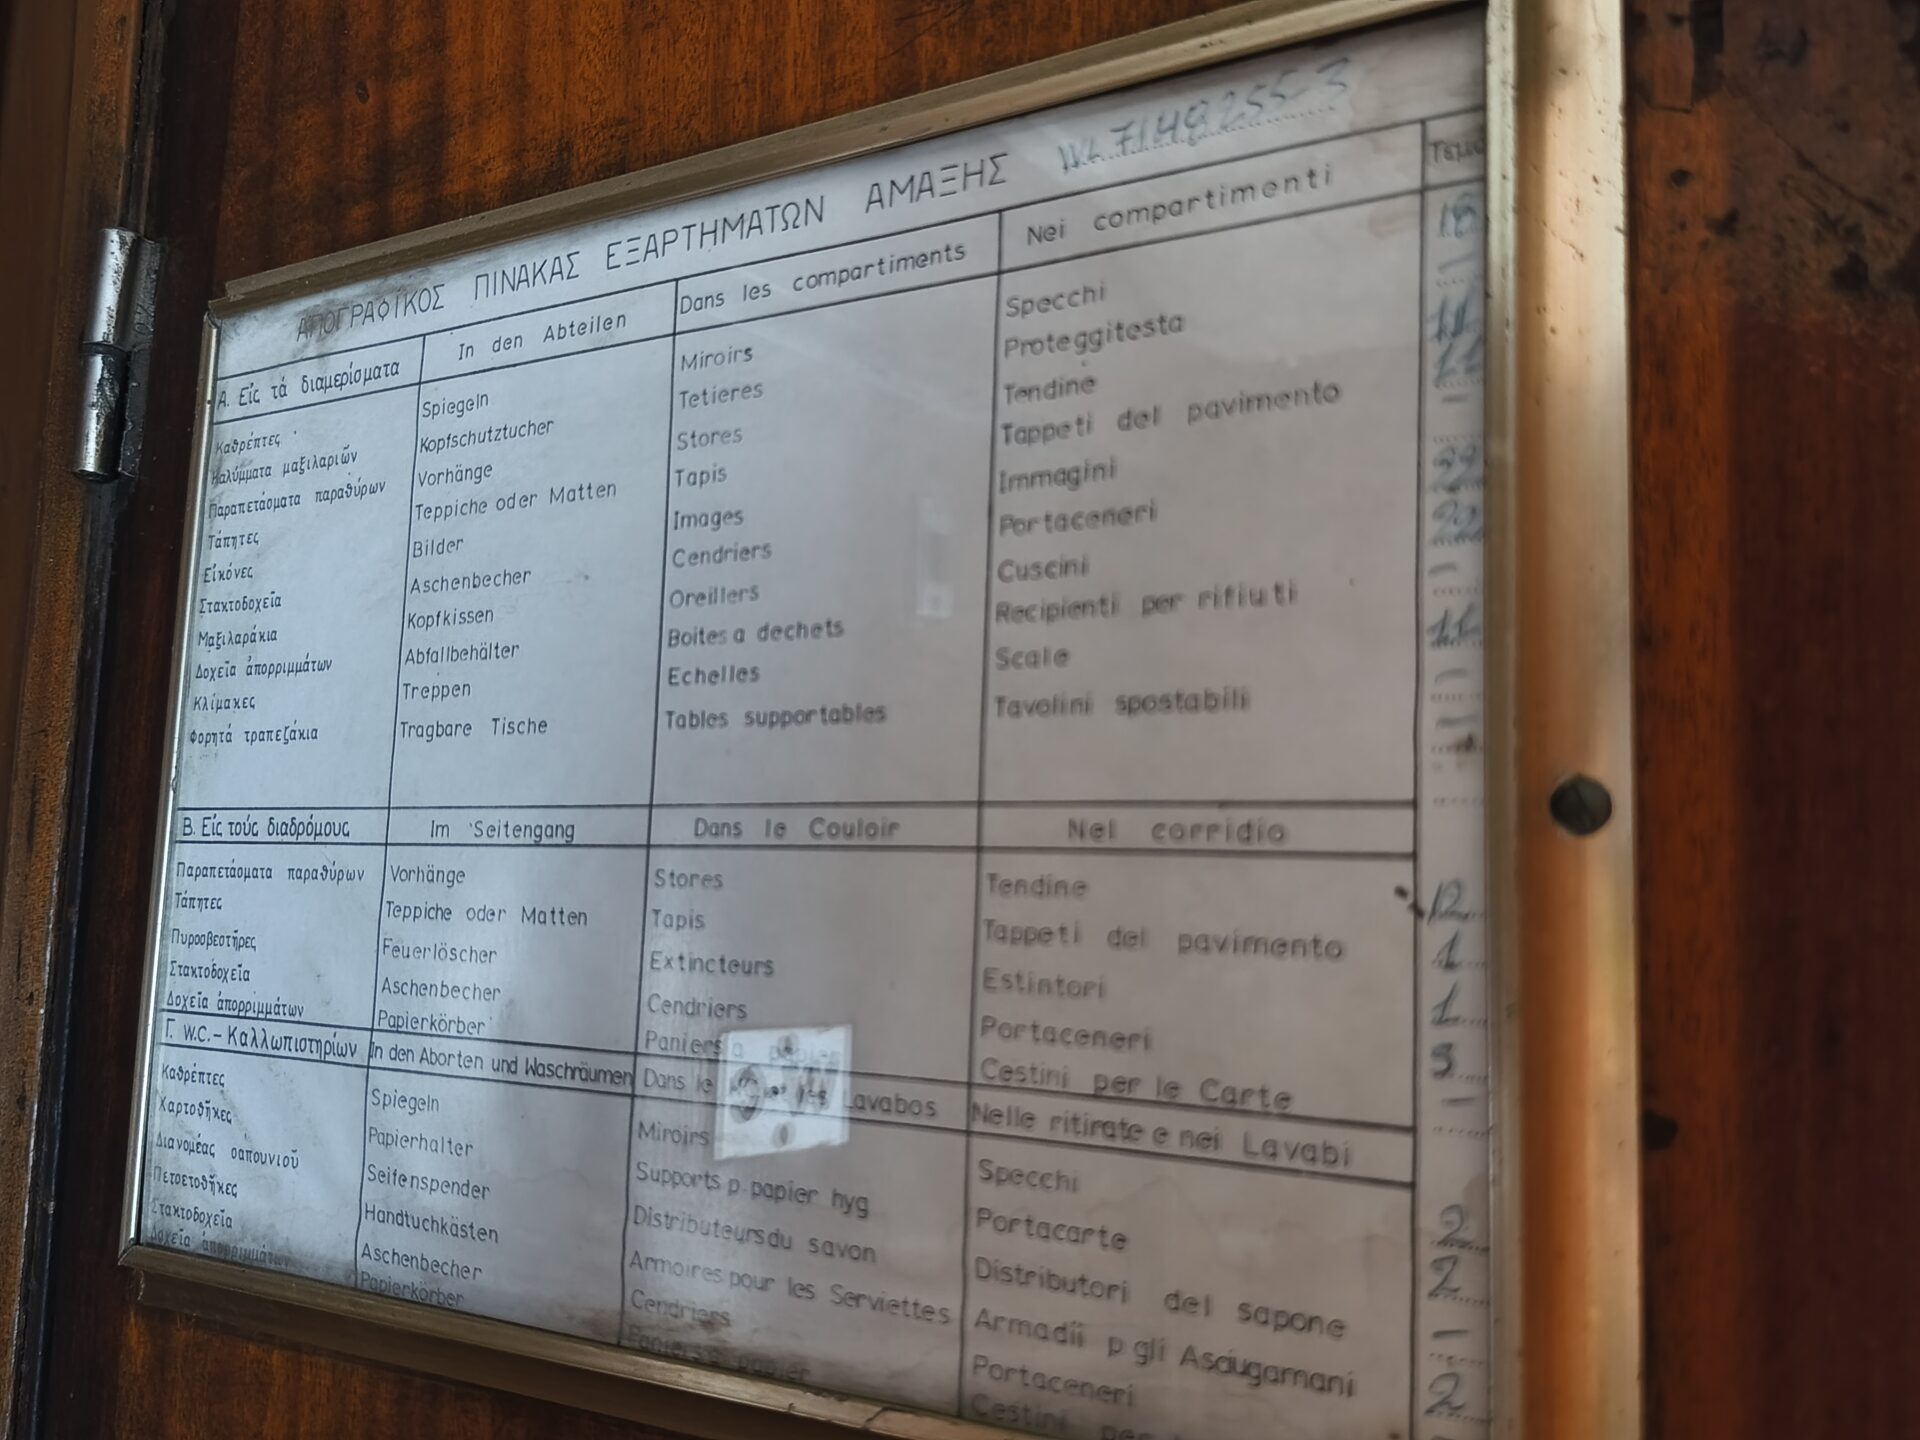 ΑΠΟΓΡΑΦΙΚΟΣ ΠΙΝΑΚΑΣ ΕΞΑΡΤΗΜΑΤΩΝ ΑΜΑΞΗΣ
Α. Εἰς τά διαμερίσματα In den Abteilen Dans les compartiments Nei compartimenti
Καθρέπτες Spiegeln Miroirs Specchi 18
Καλύμματα μαξιλαριῶν Kopfschutztucher Tetieres Proteggitesta -
Παραπετάσματα παραθύρων Vorhänge Stores Tendine 11
Τάπητες Teppiche oder Matten Tapis Tappeti del pavimento 11
Εἰκόνες Bilder Images Immagini -
Στακτοδοχεῖα Aschenbecher Cendriers Portaceneri 22
Μαξιλαράκια Kopfkissen Oreillers Cuscini
Δοχεῖα ἀπορριμμάτων Abfallbehälter Boites a dechets Recipienti per rifiuti
Κλίμακες Treppen Echelles Scale
Φορητά τραπεζάκια Tragbare Tische Tables supportables Tavolini spostabili
Β. Εἰς τούς διαδρόμους Im Seitengang Dans le Couloir Nel corridio
Παραπετάσματα παραθύρων Vorhänge Stores Tendine 12
Τάπητες Teppiche oder Matten Tapis Tappeti del pavimento 1
Πυροσβεστῆρες Feuerlöscher Extincteurs Estintori 1
Στακτοδοχεῖα Aschenbecher Cendriers Portaceneri
Δοχεῖα ἀπορριμμάτων Papierkörber Paniers a Cestini per le Carte -
Γ. W.C.- Καλλωπιστηρίων In den Aborten und Waschräumen Dans le Lavabos Nelle ritirate e nei Lavabi
Καθρέπτες Spiegeln Miroirs Specchi 2
Χαρτοθῆκες Papierhalter Supports p. papier hyg Portacarte 2
Διανομέας σαπουνιοῦ Seifenspender Distributeurs du savon Distributori del sapone -
Πετσετοθῆκες Handtuchkästen Armoires pour les Serviettes Armadii p gli Asciugamani 2
Στακτοδοχεῖα Aschenbecher Cendriers Portaceneri
Δοχεῖα ἀπορριμμάτων Papierkörber papier Cestini per